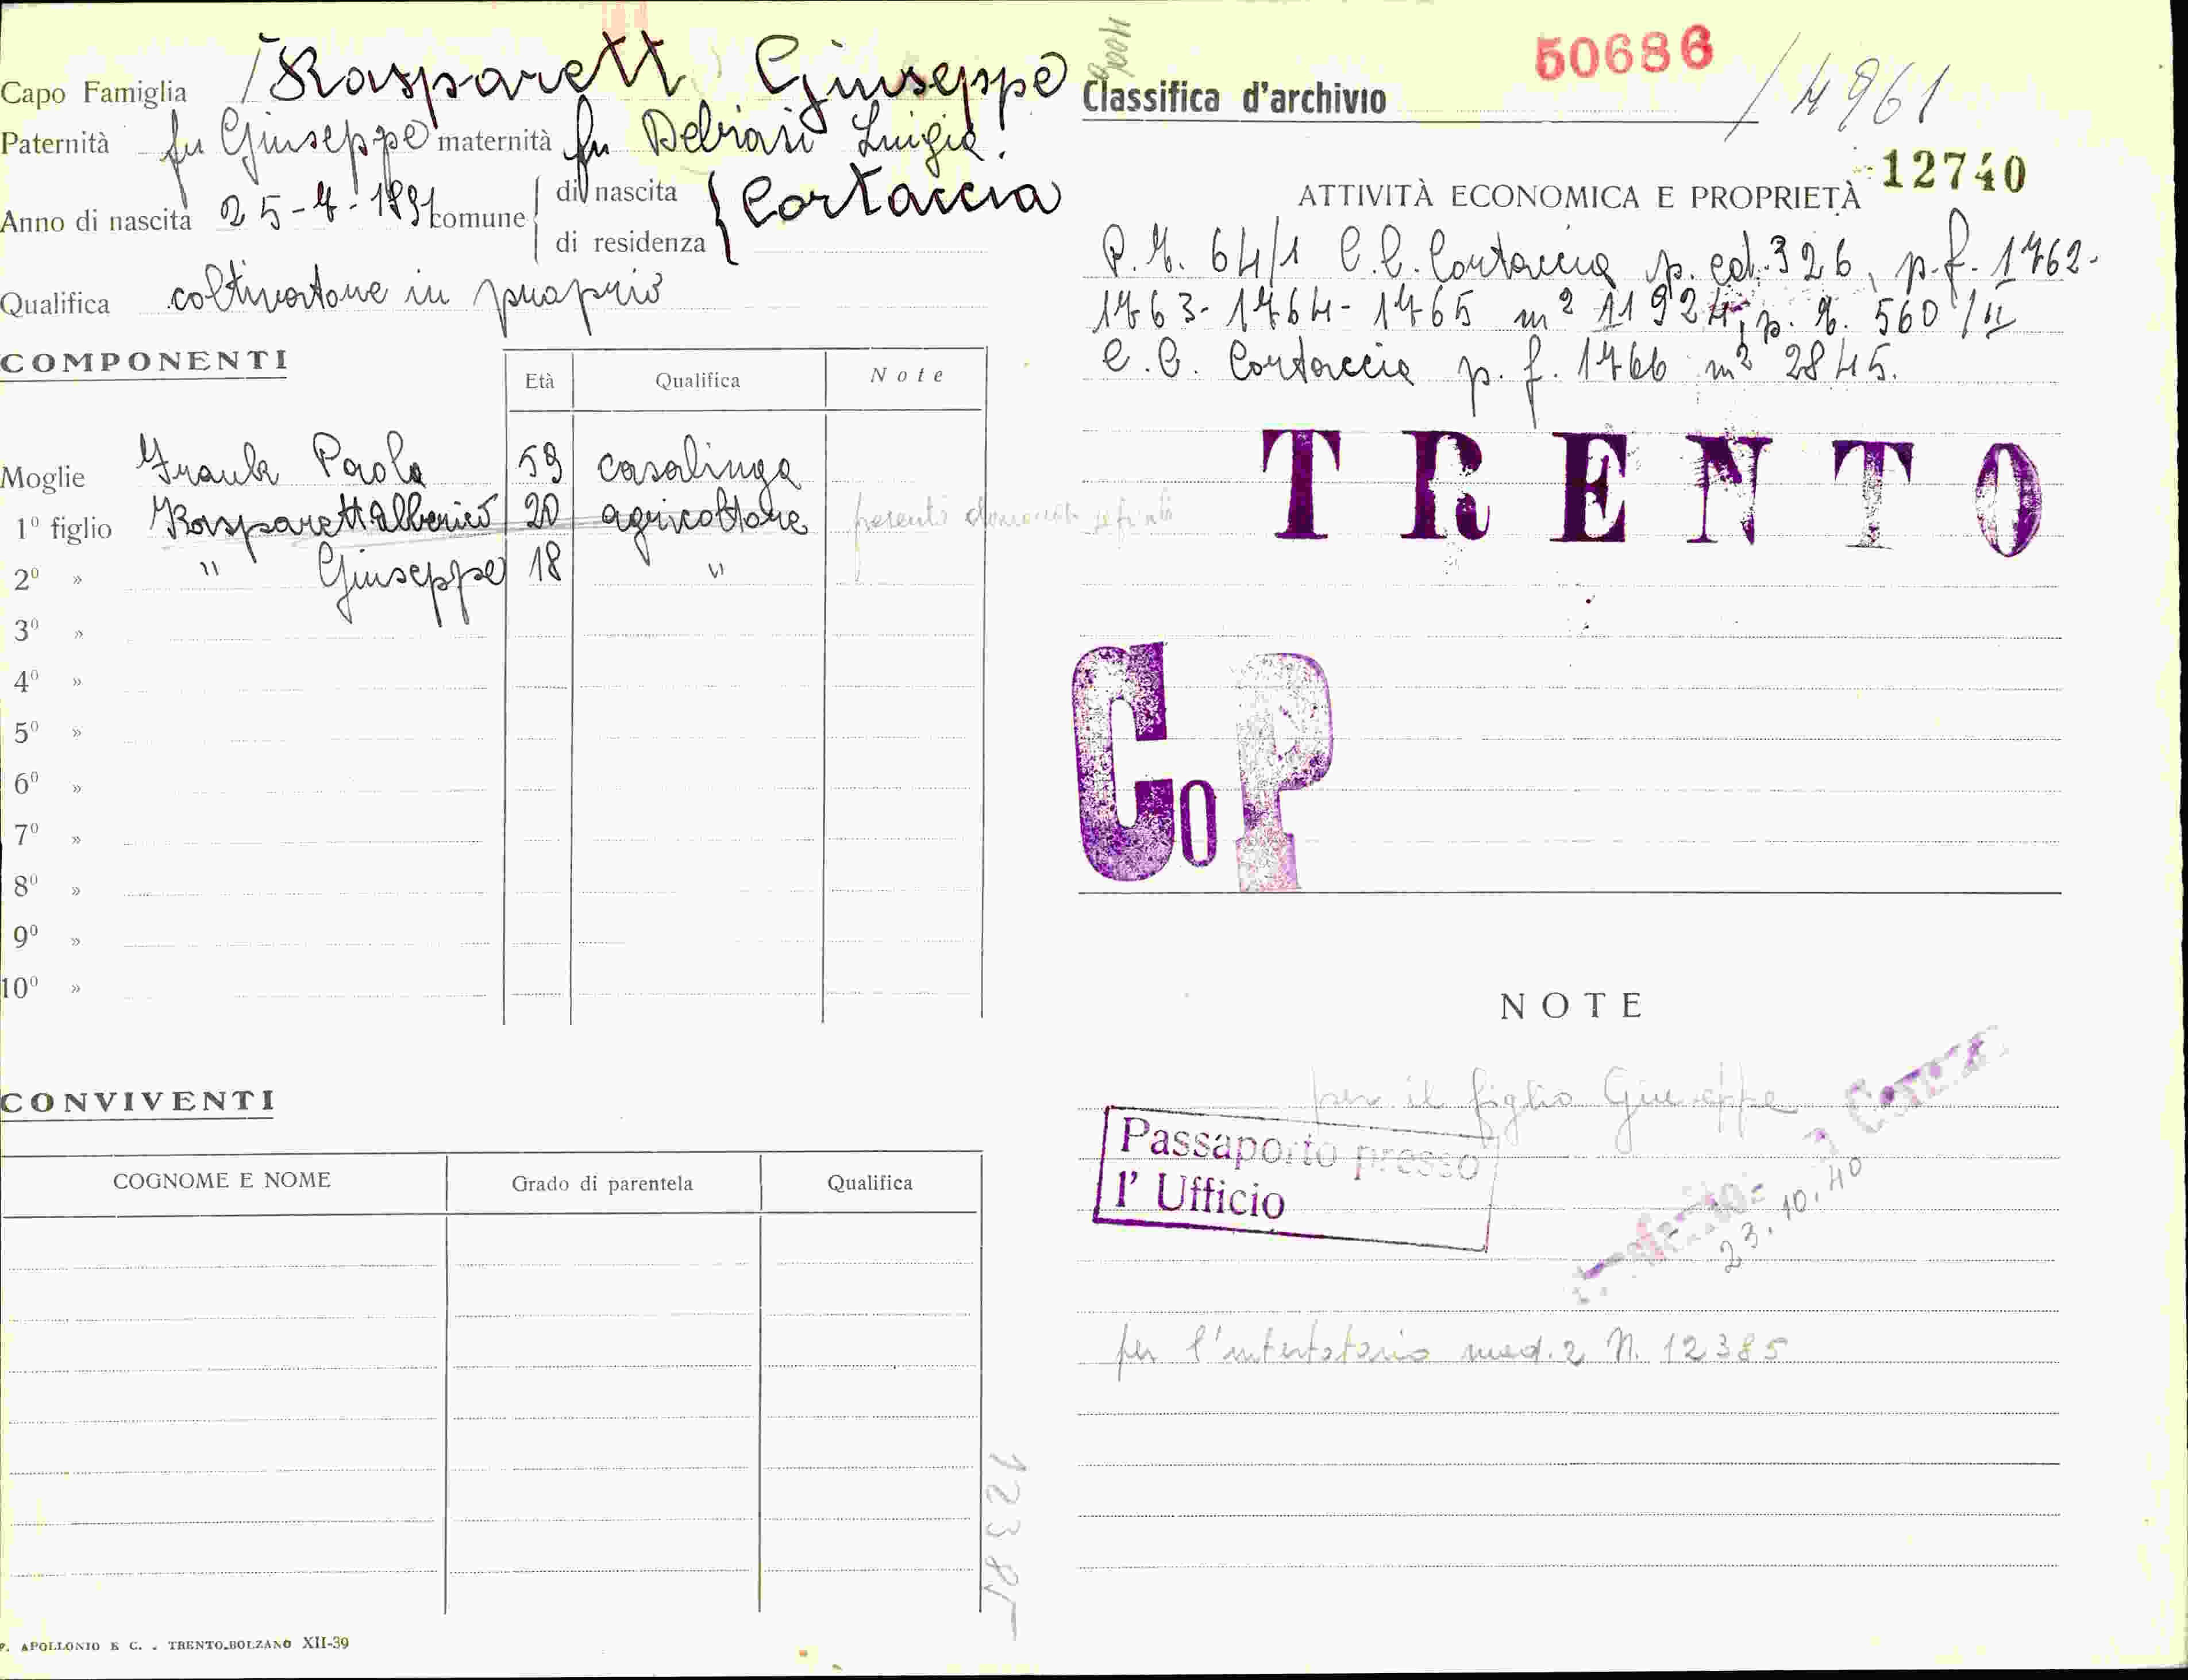 Capo Famiglia Kasparett Giuseppe
Paternità fu Giuseppe maternità fu Debiasi Luigia
Anno di nascita 25-7-1891 comune di nascita Cortaccia
di residenza
Qualifica coltivatore in proprio
COMPONENTI
Età Qualifica Note
Moglie Frank Paola 59 casalinga
1º figlio Kasparett Alberico 20 agricoltore presentò domanda
2º » " Giuseppe 18 "
3º »
4º »
5º »
6º »
7º »
8º »
9º »
10º »
CONVIVENTI
COGNOME E NOME Grado di parentela Qualifica
12385
P. APOLLONIO E C. - TRENTO-BOLZANO XII-39
50686
Classifica d'archivio / 4961
12740
ATTIVITÀ ECONOMICA E PROPRIETÀ
P.T. 64/1 C.C. Cortaccia p. ed. 326, p.f. 1762-
1763-1764-1765 m² 11924, p.t. 560/II
C.C. Cortaccia p.f. 1766 m² 2845.
TRENTO
Co P
NOTE
per il figlio Giuseppe
Passaporto presso
l' Ufficio
23.10.40
per l'intestatario mod. 2 N. 12385